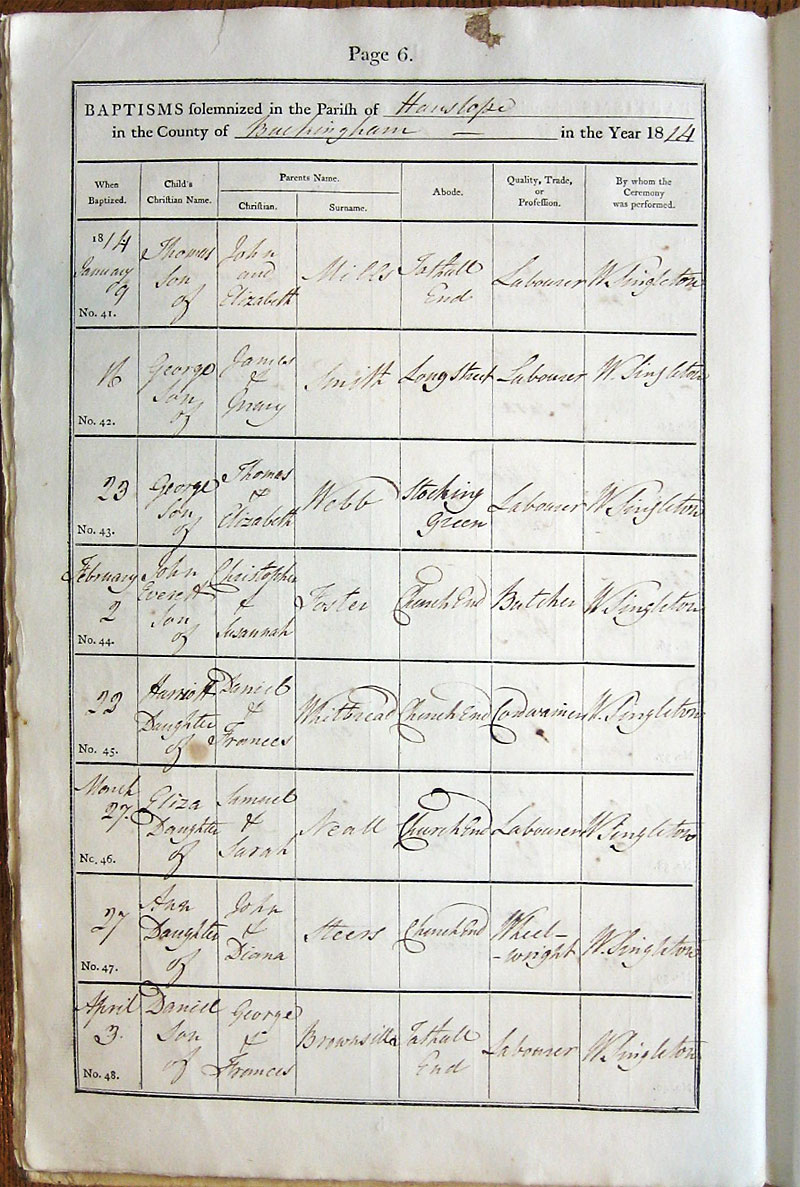 Page 6.
BAPTISMS solemnized in the Parish of Hanslope
in the County of Buckingham — in the Year 1814
When Baptized.
Child's Christian Name.
Parents Name.
Christian.
Surname.
Abode.
Quality, Trade, or Profession.
By whom the Ceremony was performed.
1814
January
09
No. 41.
Thomas
Son
of
John
and
Elizabeth
Mills
Tathall
End
Labourer
W. Singleton
16
No. 42.
George
Son
of
James
&
Mary
Smith
Longstreet
Labourer
W. Singleton
23
No. 43.
George
Son
of
Thomas
&
Elizabeth
Webb
Stocking
Green
Labourer
W. Singleton
February
2
No. 44.
John
Everett
Son
of
Christopher
&
Susannah
Foster
Church End
Butcher
W. Singleton
23
No. 45.
Harriott
Daughter
of
Daniel
&
Frances
Whitbread
Church End
Cordwainer
W. Singleton
March
27
No. 46.
Eliza
Daughter
of
Samuel
&
Sarah
Neall
Church End
Labourer
W. Singleton
27
No. 47.
Ann
Daughter
of
John
&
Diana
Steers
Church End
Wheel-
-wright
W. Singleton
April
3
No. 48.
Daniel
Son
of
George
&
Frances
Brownsill
Tathall
End
Labourer
W. Singleton